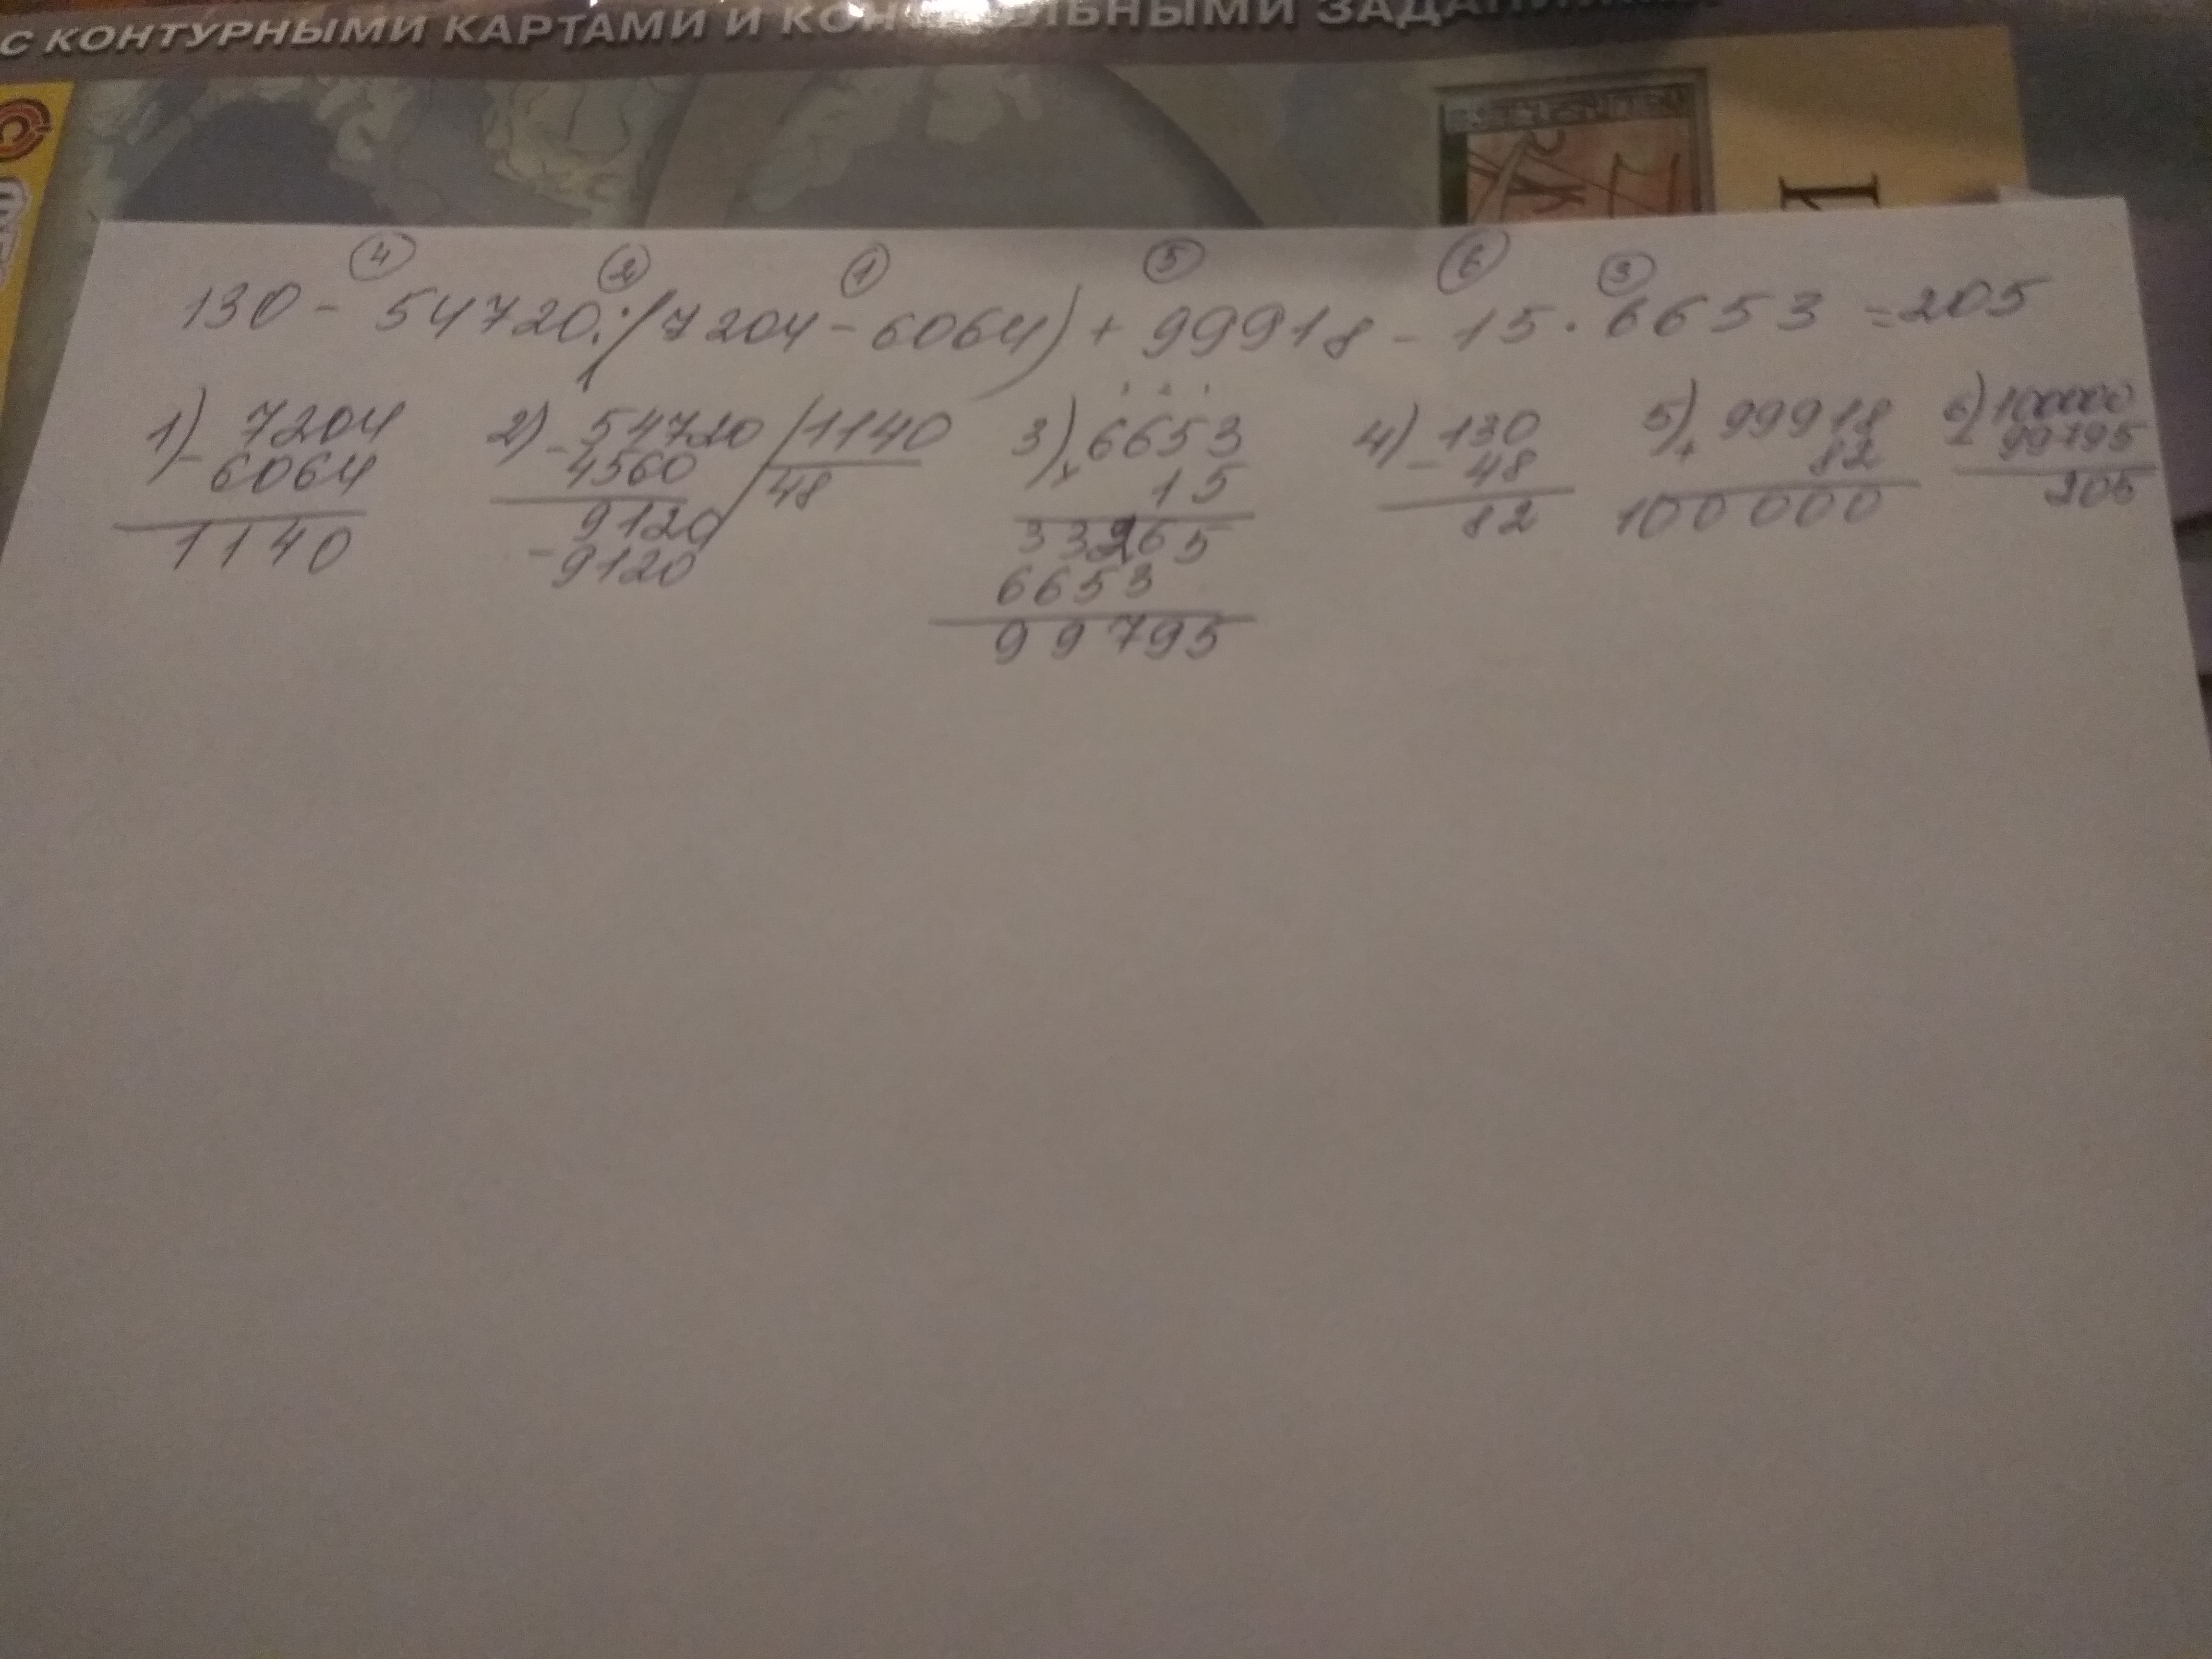 С КОНТУРНЫМИ КАРТАМИ И
④ ② ① ⑤ ⑥ ③
130 - 54720 : (7204 - 6064) + 99918 - 15 · 6653 = 205
1) 7204 2) - 54720 | 1140 3) 6653 4) 130 5) 99918 6) 100000
- 6064 4560 48 × 15 - 48 + 82 - 99795
1140 9120 33265 82 100000 205
- 9120 6653
99795